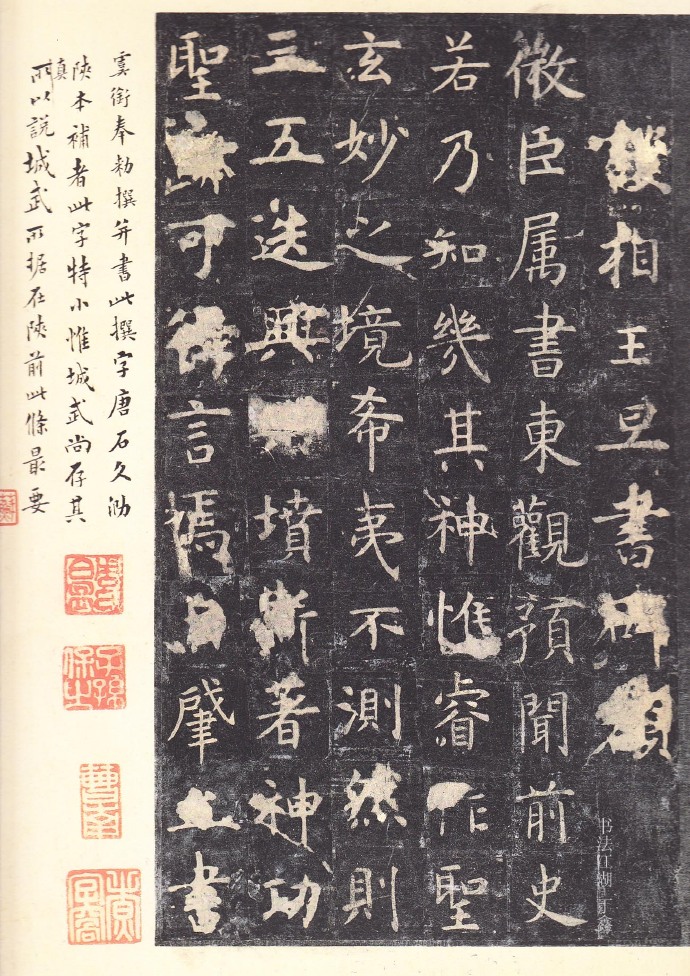 護相王旦書碑額
微臣属書東觀預聞前史
若乃知幾其神惟睿作聖
玄妙之境希夷不測然則
三五迭興墳斯著神功
聖迹可得言焉自肇立書
虞銜奉勅撰并書此撰字唐石久泐
陝本補者此字特小惟城武尚存其
真所以說城武所據在陝前此條最要
子孫保之
书法江湖